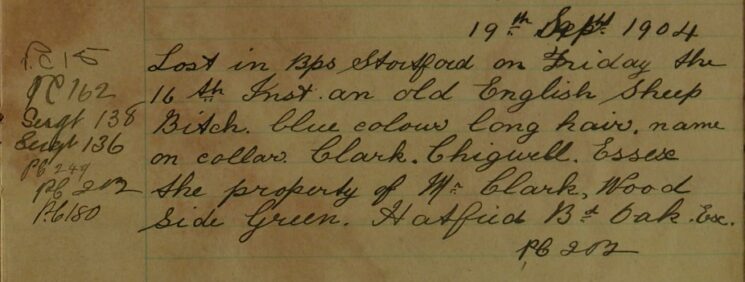 19th Sept 1904
P.C 15
Lost in Bps Stortford on Friday the
PC 162
16th Inst. an old English Sheep
Sergt 138
Bitch. blue colour long hair, name
Sergt 136
on collar. Clark. Chigwell. Essex
PC 249
the property of Mr Clark, Wood
PC 202
Side Green. Hatfield Bd Oak. Ex.
PC 180
PC 202